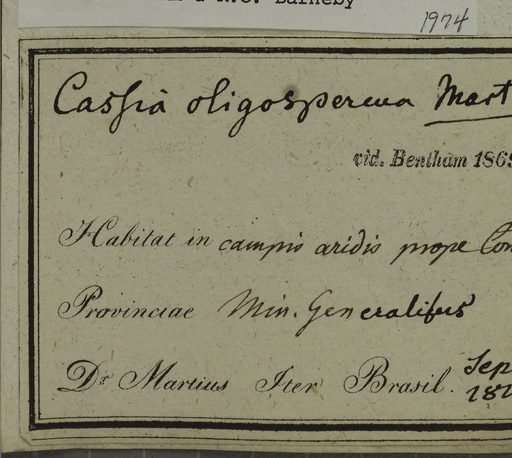 R.C. Barneby
1974
Cassia oligosperma Mart
vid. Bentham 1869
Habitat in campis aridis prope Con
Provinciae Min. Generalibus
Sep
Dr Martius Iter Brasil. 181